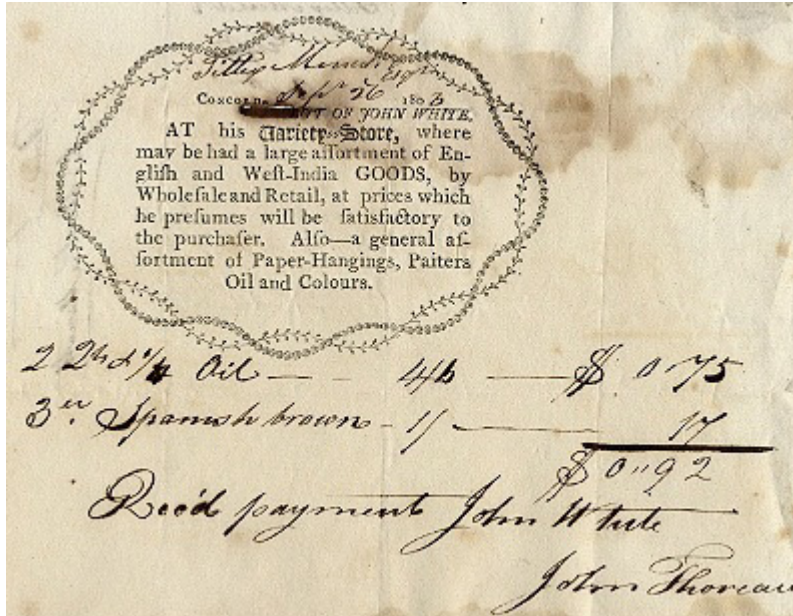 Esqr
CONCORD, Sepr 26 1803
BOUGHT OF JOHN WHITE,
AT his Variety-Store, where
may be had a large aſſortment of En-
gliſh and Weſt-India GOODS, by
Wholeſale and Retail, at prices which
he preſumes will be ſatisfactory to
the purchaſer. Alſo—a general aſ-
ſortment of Paper-Hangings, Paiters
Oil and Colours.
Oil — 4/6 — $ 0 75
3 Spanish brown - 1/ — 17
$ 0 " 92
Rec'd payment John White
John Thoreau